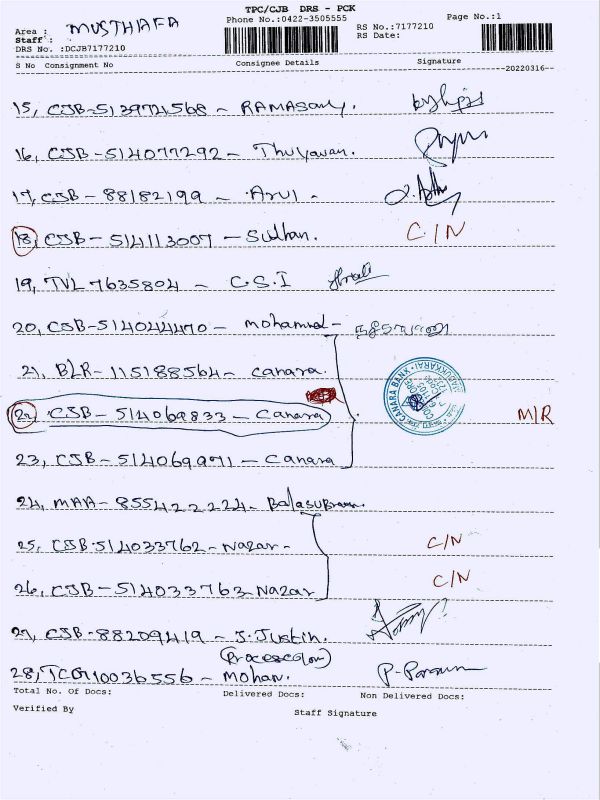 TPC/CJB DRS - PCK
Area : MUSTHAFA Phone No.:0422-3505555 RS No.:7177210 Page No.:1
Staff: RS Date:
DRS No. :DCJB7177210
S No Consignment No Consignee Details Signature
--20220316--
15, CJB-513974568 - RAMASamy.
16, CJB-514077292 -
17, CJB-88182199 - Arul -
18, CJB-514113007 - Sudhan. C/N
19, TVL 7635804 - C.S.I
20, CJB-514044470 - mohamed-
21, BLR-115188564 - canara.
CANARA BANK
22, CJB-514069833 - Canara M/R
23, CJB-514069971 - Canara
24, MAA-855422224-
25, CJB-514033762-Nazar- C/N
26, CJB-514033763-Nazar C/N
27, CJB-88209419 - J.Justin.
28, TCG10036556 - mohan.
Total No. Of Docs: Delivered Docs: Non Delivered Docs:
Verified By Staff Signature